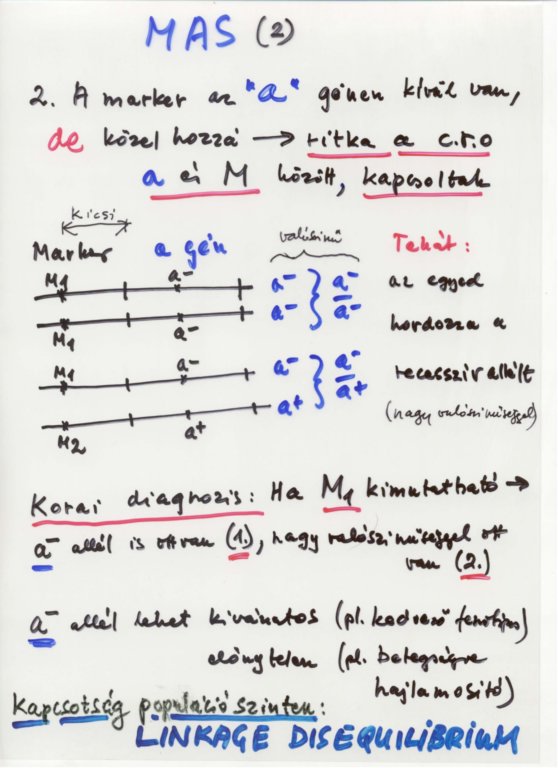 MAS (2)
2. A marker az "a" génen kívül van,
de közel hozzá → ritka a c.r.o
a és M között, kapcsoltak
kicsi
Marker a gén valószínű Tehát:
M1 a- a- a-
az egyed
M1 a- a- a-
hordozza a
M1 a- a- a-
recesszív allélt
M2 a+ a+ a+
(nagy valószínűséggel)
Korai diagnozis: Ha M1 kimutatható →
a- allél is ott van (1.), nagy valószínűséggel ott
van (2.)
a- allél lehet kívánatos (pl. kedvező fenotípus)
előnytelen (pl. betegségre
hajlamosító)
Kapcsotság populáció szinten:
LINKAGE DISEQUILIBRIUM